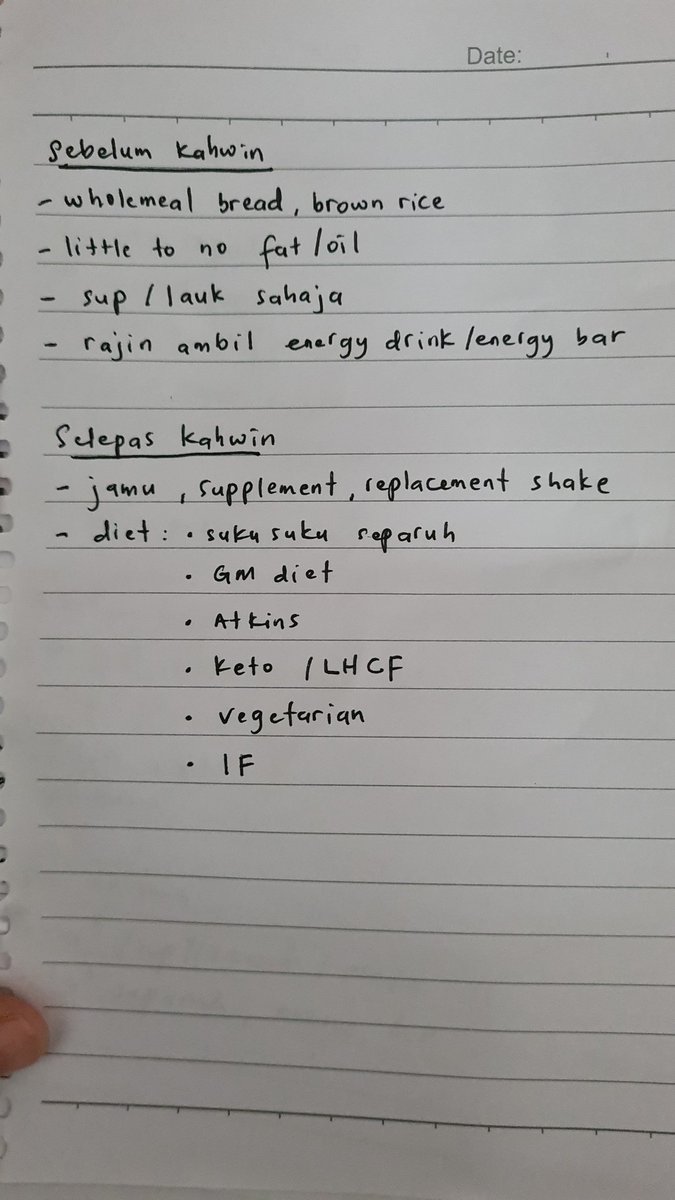 Date:
Sebelum Kahwin
- wholemeal bread, brown rice
- little to no fat/oil
- sup / lauk sahaja
- rajin ambil energy drink/energy bar
Selepas Kahwin
- jamu, supplement, replacement shake
- diet: • suku suku separuh
• GM diet
• Atkins
• Keto / LHCF
• vegetarian
• IF